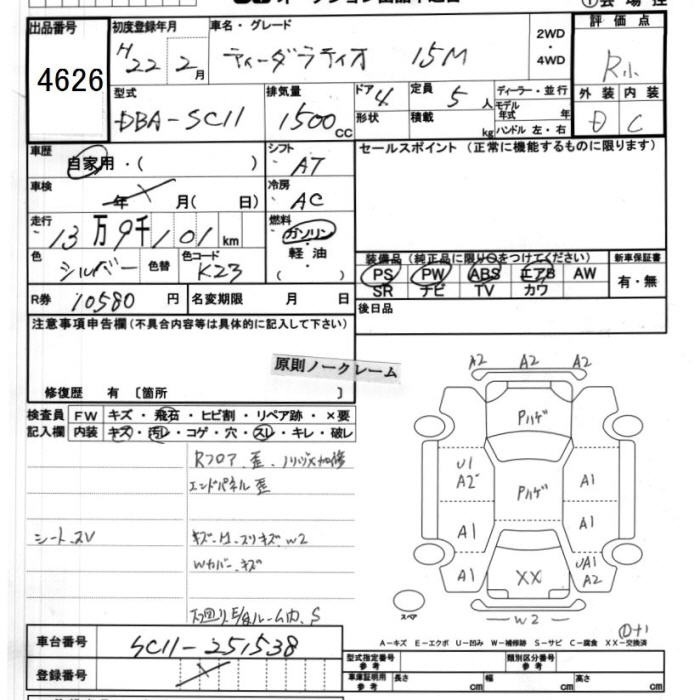 出品番号
4626
初度登録年月
H22 2月
車名・グレード
ティーダラティオ 15M
2WD
・
4WD
評価点
R小
型式
DBA-SC11
排気量
1500cc
ドア
4
形状
定員
5人
積載
kg
ディーラー・並行
モデル
年式 年
ハンドル 左・右
外装 内装
D C
車歴
自家用・( )
シフト
AT
車検
年 月( 日)
冷房
AC
走行
13万9千101km
燃料
ガソリン
軽油
( )
色
シルバー
色替
色コード
K23
R券 10580円
名変期限 月 日
セールスポイント (正常に機能するものに限ります)
装備品 (純正品に限り○をつけてください) 新車保証書
PS PW ABS エアB AW 有・無
SR ナビ TV カワ
後日品
注意事項申告欄(不具合内容等は具体的に記入して下さい)
原則ノークレーム
修復歴 有 〔箇所 〕
検査員 FW キズ・飛石・ヒビ割・リペア跡・×要
記入欄 内装 キズ・汚レ・コゲ・穴・スレ・キレ・破レ
Rフロア 歪
エンドパネル 歪
シート スレ
Wカバー キズ
A2 A2 A2
Pハゲ
U1
A2
Pハゲ
A1
A1
A1
A1
XX
UA1
A2
W2
スペア
A-キズ E-エクボ U-凹み W-補修跡 S-サビ C-腐食 XX-交換済
車台番号 SC11-251538
登録番号
型式指定番号
参考
類別区分番号
参考
車庫証明用
参考
長さ cm 幅 cm 高さ cm